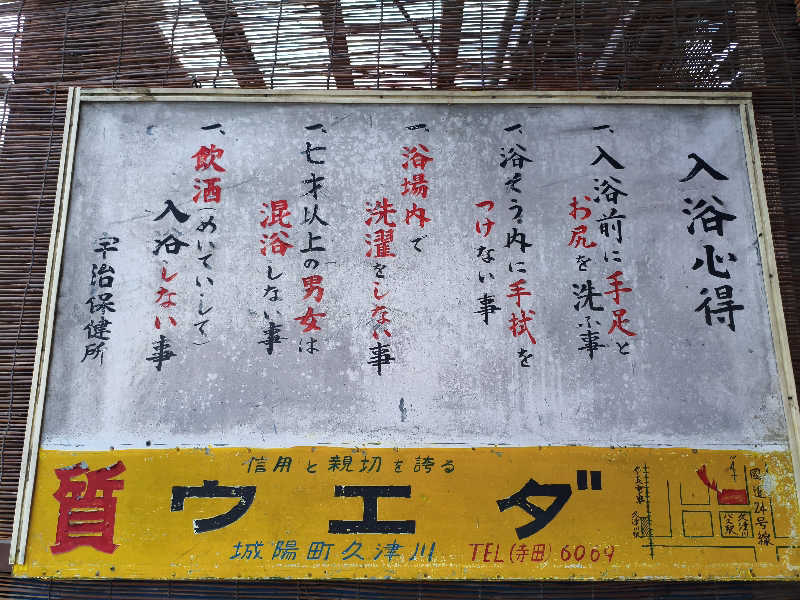 入浴心得
一、入浴前に手足と
お尻を洗ふ事
一、浴そう内に手拭を
つけない事
一、浴場内で
洗濯をしない事
一、七才以上の男女は
混浴しない事
一、飲酒(めいていして)
入浴しない事
宇治保健所
信用と親切を誇る
質 ウエダ
城陽町久津川 TEL(寺田)6069
国道24号線
久津川
久津川駅